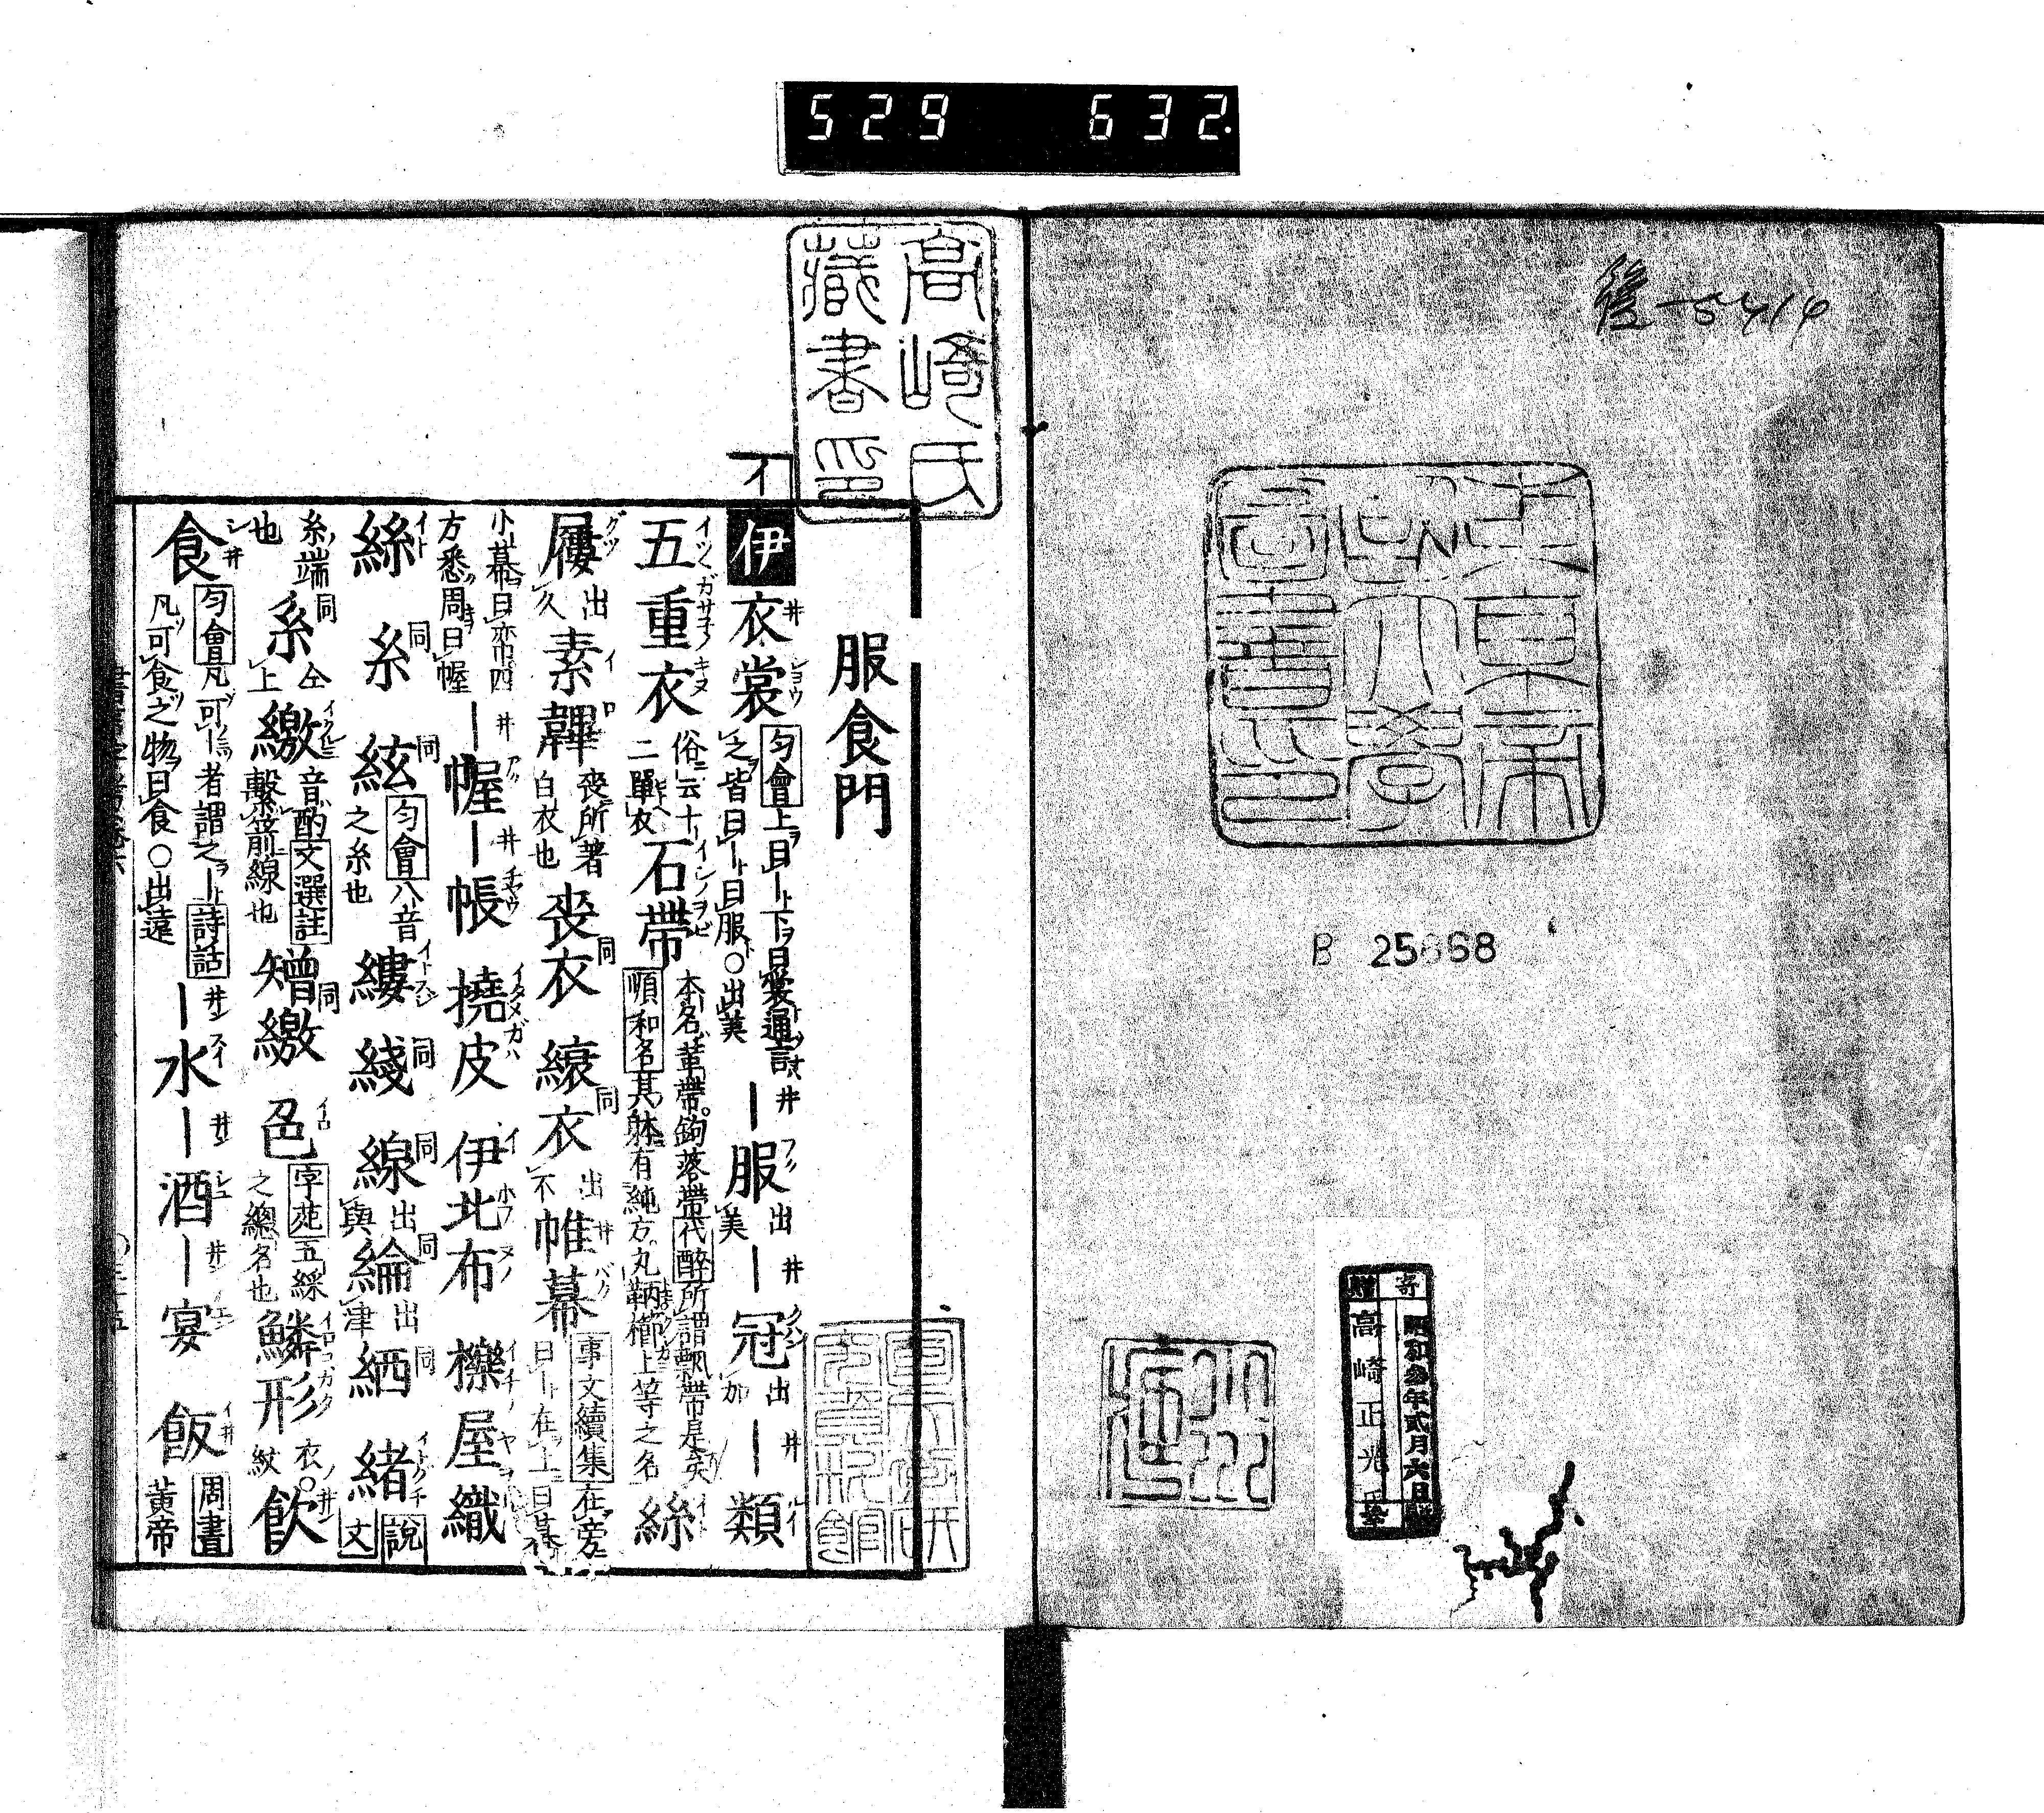 529 632
B 25668
寄贈
昭和参年弐月六日
高崎正光氏
高崎氏
藏書印
イ
服食門
伊 衣裳 匀會上曰―下曰裳通言
之皆曰―曰服○出美
―服 出美 ―冠 出加 ―類
五重衣 俗云十
二單衣
石帶 本名革帶鉤落帶代醉所謂飄帶是矣
順和名其躰有純方丸鞆櫛上等之名
絲
屨 出久 素韠 喪所著
白衣也
喪衣 縗衣 出不 帷幕 事文續集在旁
曰―在上曰幕
小幕曰帟四
方悉周曰幄
―幄 ―帳 撓皮 伊北布 檪屋織
絲 糸 絃 匀會八音
之糸也
縷 綫 線 出與 綸 出津 絤 緒 説文
糸端
也
糸 仝上 繳 音酌文選註
繫箭線也
矰繳 色 字苑五綵
之總名也
鱗形 衣
紋
飲
食 匀會凡可―者謂之―詩話
凡可食之物曰食○出遠
―水 ―酒 ―宴 飯 周書
黄帝